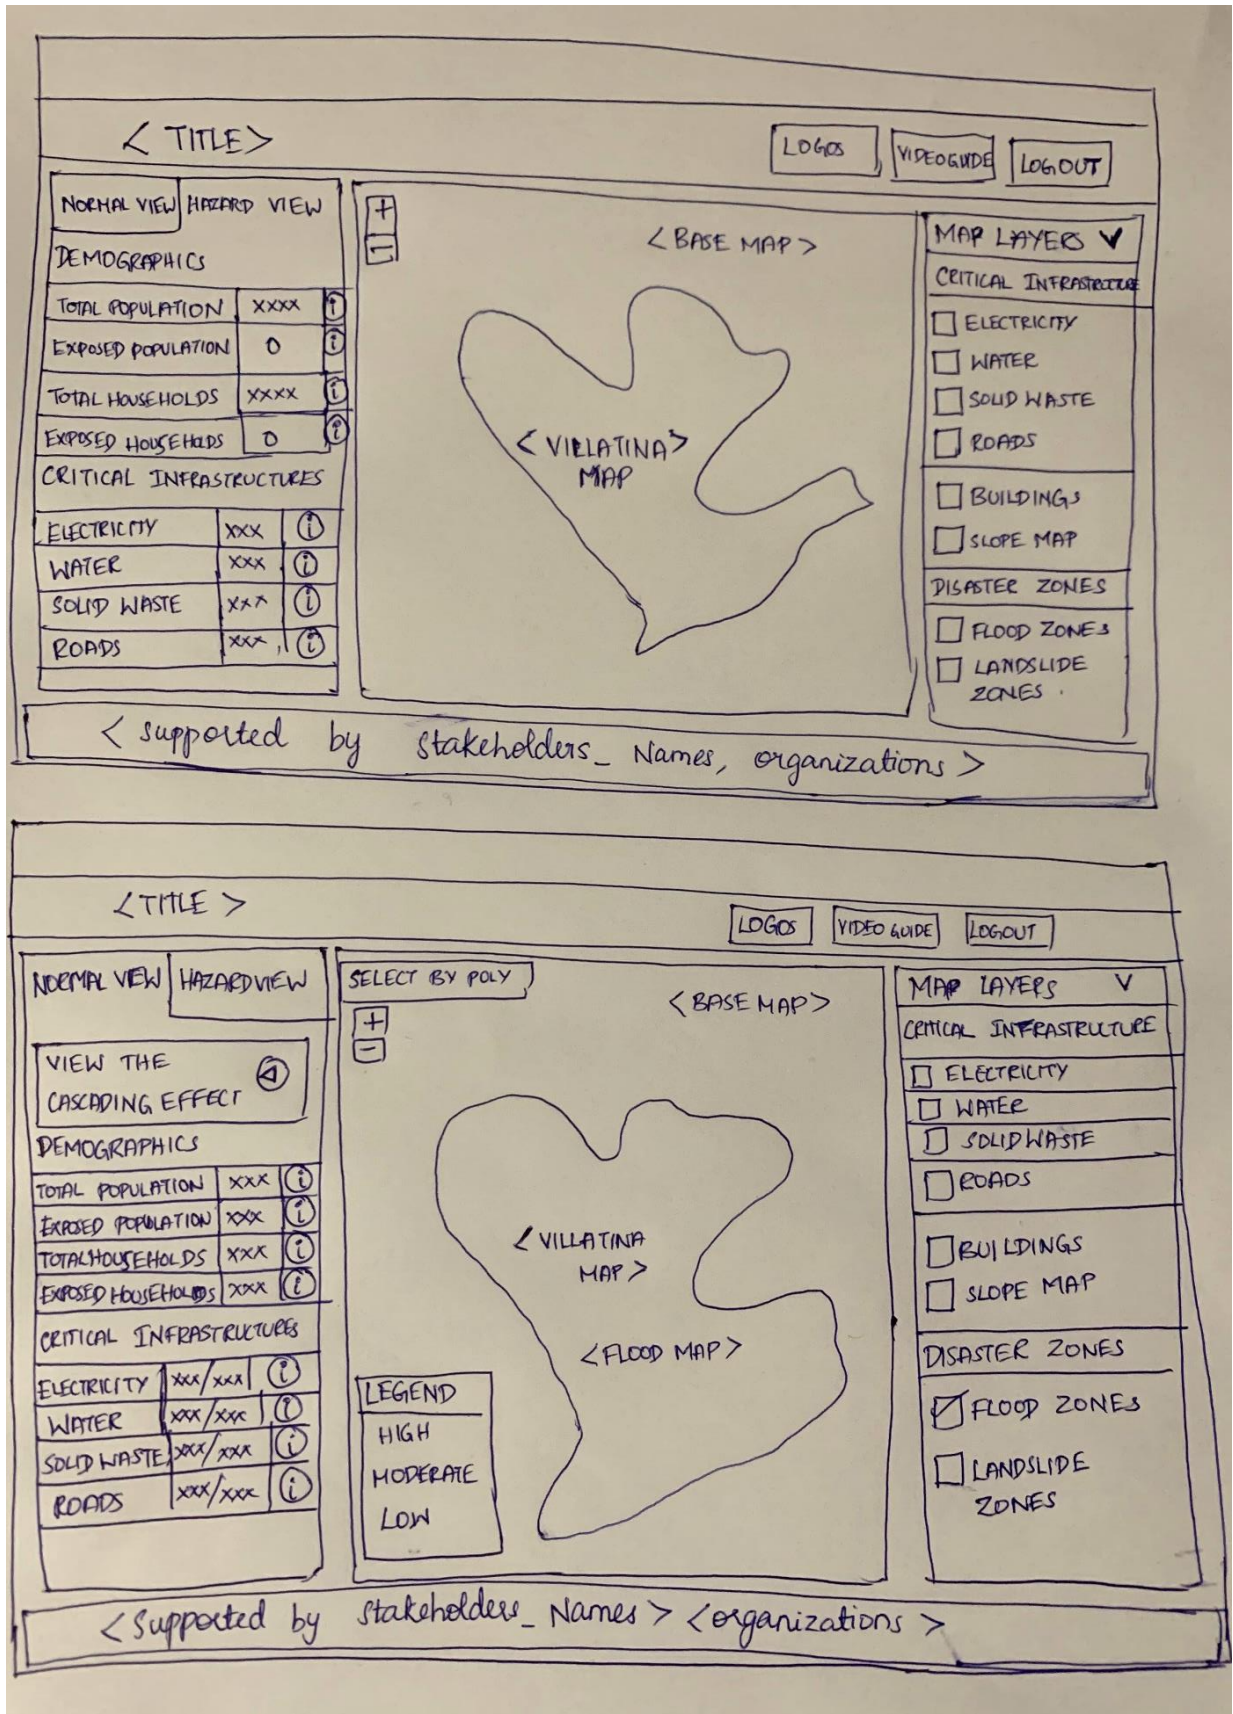 < TITLE >
LOGOS
VIDEOGUIDE
LOGOUT
NORMAL VIEW
HAZARD VIEW
DEMOGRAPHICS
TOTAL POPULATION XXXX i
EXPOSED POPULATION 0 i
TOTAL HOUSEHOLDS XXXX i
EXPOSED HOUSEHOLDS 0 i
CRITICAL INFRASTRUCTURES
ELECTRICITY XXX i
WATER XXX i
SOLID WASTE XXX i
ROADS XXX i
+
-
< BASE MAP >
< VILLATINA >
MAP
MAP LAYERS V
CRITICAL INFRASTRUCTURE
ELECTRICITY
WATER
SOLID WASTE
ROADS
BUILDINGS
SLOPE MAP
DISASTER ZONES
FLOOD ZONES
LANDSLIDE
ZONES
< supported by stakeholders_ Names, organizations >
< TITLE >
LOGOS
VIDEO GUIDE
LOGOUT
NORMAL VIEW
HAZARD VIEW
VIEW THE
CASCADING EFFECT
DEMOGRAPHICS
TOTAL POPULATION XXX i
EXPOSED POPULATION XXX i
TOTAL HOUSEHOLDS XXX i
EXPOSED HOUSEHOLDS XXX i
CRITICAL INFRASTRUCTURES
ELECTRICITY XXX/XXX i
WATER XXX/XXX i
SOLID WASTE XXX/XXX i
ROADS XXX/XXX i
SELECT BY POLY
+
-
< BASE MAP >
< VILLATINA
MAP >
< FLOOD MAP >
LEGEND
HIGH
MODERATE
LOW
MAP LAYERS V
CRITICAL INFRASTRUCTURE
ELECTRICITY
WATER
SOLID WASTE
ROADS
BUILDINGS
SLOPE MAP
DISASTER ZONES
FLOOD ZONES
LANDSLIDE
ZONES
< Supported by stakeholders_ Names > < organizations >